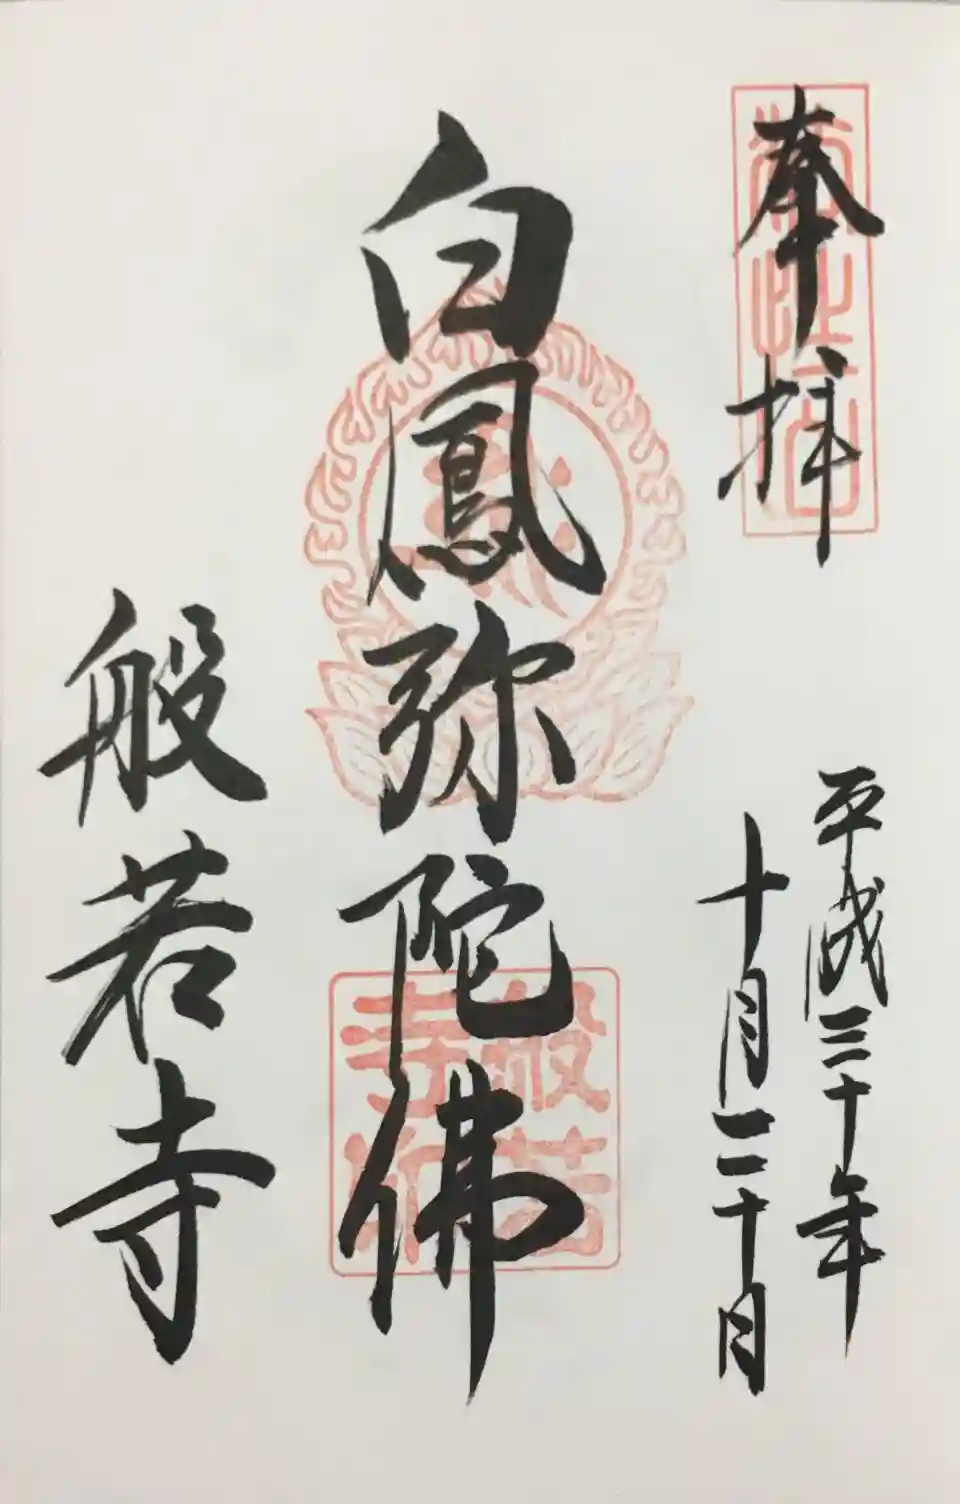 奉拝
平成三十年
十月二十日
白鳳弥陀佛
般若寺
般若
寺